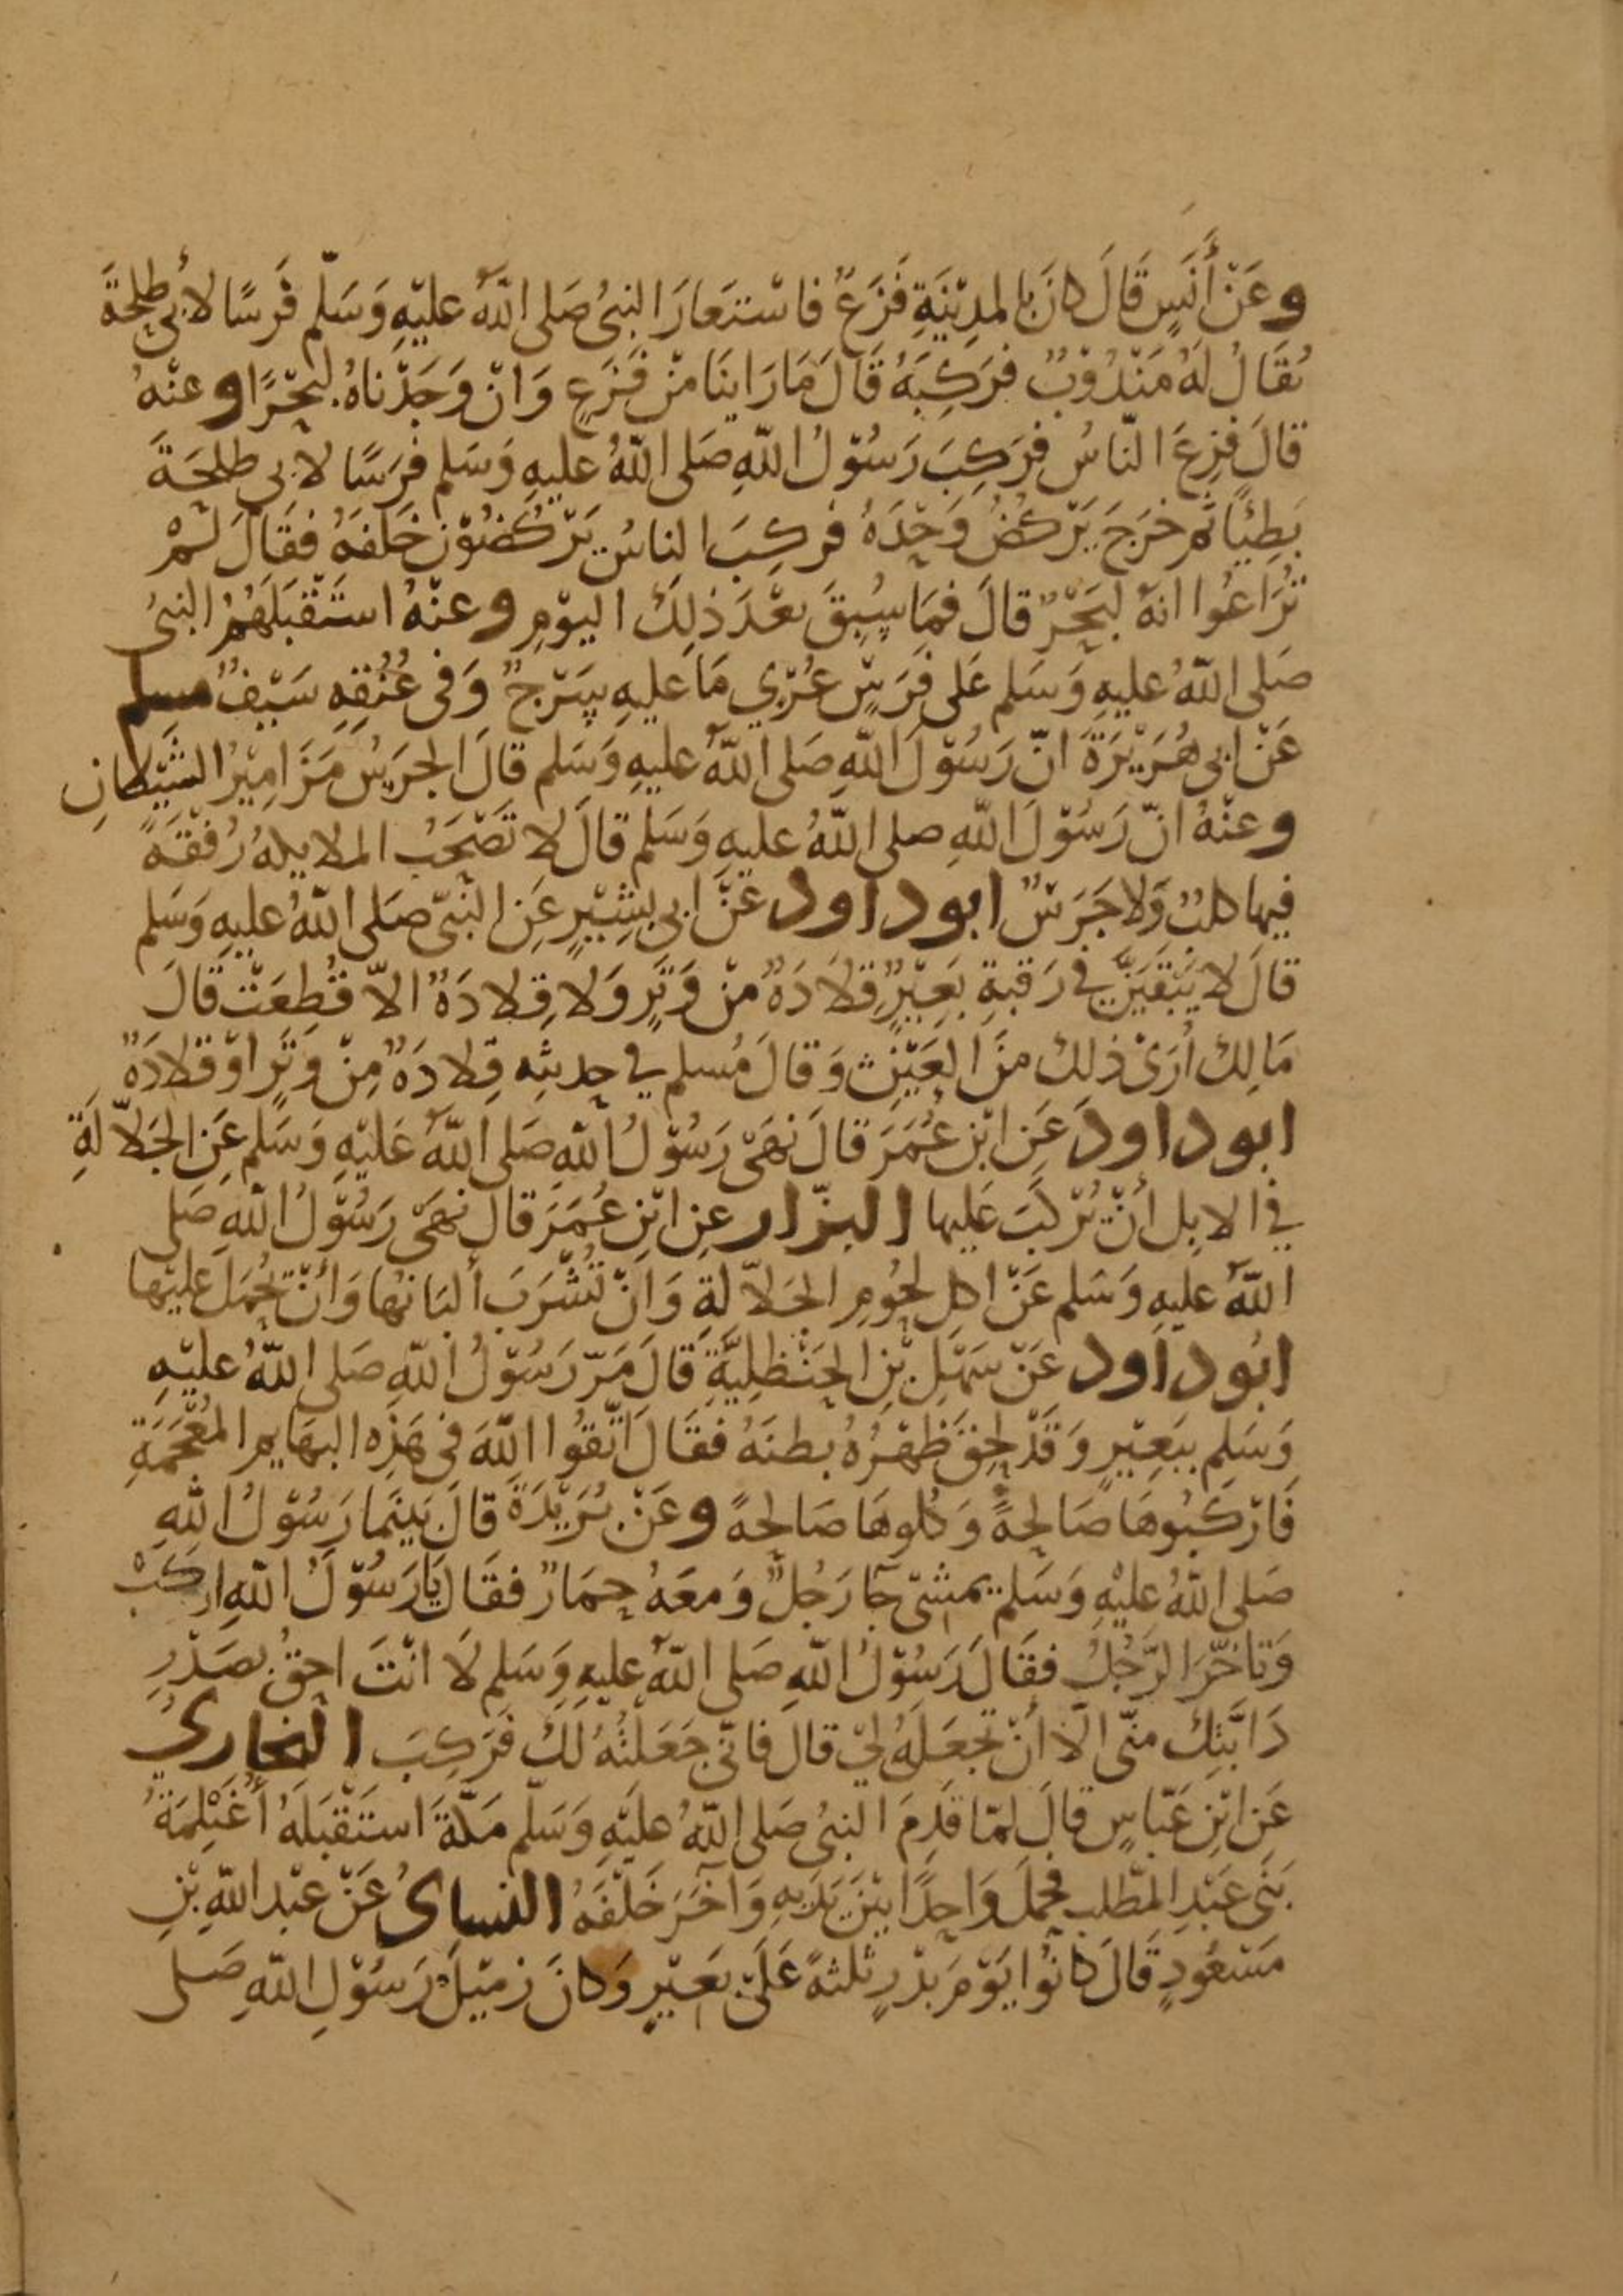 وعَنْ أَنَسٍ قَالَ كانَ بالمدِيْنَةِ فَزَعٌ فاسْتَعَارَ النبىُ صَلى اللّهُ عليْهِ وَسَلّم فَرسًا لأبى طلحَةَ
يُقَالُ لَهُ مَنْدُوْبٌ فرَكِبَهُ قَالَ مَا رَاينَا مِنْ فَزَعٍ وَانْ وَجَدْناهُ لبَحْرًا وعنْهُ
قالَ فزِعَ النّاسُ فرَكِبَ رَسُوْلُ اللّهِ صَلى اللّهُ عليهِ وَسَلم فرَسًا لابى طلحَةَ
بَطِيْئًا ثم خرَجَ يَرْكضُ وَحْدَهُ فركِبَ الناسُ يَرْكُضُوْنَ خَلفَهُ فقَالَ لَمْ
تُرَاعُوا انهُ لبَحْرٌ قالَ فمَا سُبِقَ بعْدَ ذلِكَ اليَوْمِ وعنْهُ استَقْبَلَهُمُ النبىُ
صَلى اللّهُ عليهِ وَسَلم عَلى فَرَسٍ عُرْيٍ مَا عليهِ سَرْجٌ وَفى عُنُقِهِ سَيْفٌ مسلم
عَنْ ابى هُرَيْرَةَ انّ رَسُوْلَ اللّهِ صَلى اللّهُ عليهِ وَسَلم قالَ الجرَسُ مَزَامِيْرُ الشّيْطانِ
وعنْهُ انّ رَسُوْلَ اللّهِ صلى اللّهُ عليهِ وَسَلم قالَ لا تَصْحَبُ الملايكهُ رُفْقَةً
فيها كلبٌ وَلا جَرَسٌ ابوداود عَنْ ابى بشِيْرٍ عَنِ النّبىّ صَلى اللّهُ عليهِ وَسَلم
قالَ لا يَبْقَيَنَّ في رَقبةِ بَعِيْرٍ قِلاَدَهٌ مِنْ وَتَرٍ وَلا قِلادَهٌ الاّ قُطِعَتْ قالَ
مَالِك أرَىْ ذلكَ مِنَ العَيْنِ وَقالَ مُسلم في حديثِهِ قِلادَهٌ مِنْ وَتَرٍ اوْ قلادَهٌ
ابوداود عَنِ ابْنِ عُمَرَ قالَ نَهَىْ رَسُوْلُ اللّهِ صَلى اللّهُ عَليْهِ وَسَلم عَنِ الجَلاّلَةِ
في الابِل أنْ يُرْكبَ عَليها البزّار عنِ ابْنِ عُمَرَ قالَ نهَى رَسُوْلُ اللّهِ صَلى
اللّهُ عليهِ وَسَلم عَنْ اكلِ لحُومِ الجَلاّلةِ وَانْ تُشْرَبَ ألبَانُها وَأنْ يُحْمَلَ عليْها
ابُوداود عَنْ سَهْلِ بْنِ الحَنْظليَّةِ قَالَ مَرّ رَسُوْلُ اللّهِ صَلى اللّهُ عليْهِ
وَسَلم ببَعِيْرٍ وَقَدْ لحِقَ ظهْرُهُ بطنَهُ فقَالَ اتّقُوا اللّهَ فى هَذِه البهَايم المُعْجَمَةِ
فَارْكَبُوهَا صَالحِةً وَكلُوهَا صَالحِهً وعَنْ بُرَيْدَةَ قالَ بَينَما رَسُوْلُ اللّهِ
صَلى اللّهُ عليْهِ وَسَلم يمشىْ جآ رَجُلٌ وَمعَهُ حِمَارٌ فقَالَ يَا رَسُوْلَ اللّهِ ارْكَبْ
وَتاخّرَ الرَّجُلُ فقَالَ رَسُوْلُ اللّهِ صَلى اللّهُ عليهِ وَسَلم لاَ انْتَ احقُ بصَدْرِ
دَابَّتِكَ منّى الاّ أنْ تجعَلَهُ لي قالَ فانّى جَعَلتُهُ لكَ فَرَكِبَ البخاري
عَنِ ابْنِ عَبّاسٍ قالَ لمّا قَدِمَ النبىُ صَلى اللّهُ عليْهِ وَسَلم مَكّةَ استَقْبَلَهُ أغَيْلِمَةُ
بَنى عَبْدِ المُطّلب فحمَلَ وَاحِدًا بَيْنَ يَدَيهِ وَآخَرَ خَلْفَهُ النساىُ عَنْ عبْدِ اللّهِ بْنِ
مَسْعُودٍ قَالَ كانُوا يَوْمَ بَدْرٍ ثلثهً عَلىَ بَعِيْرٍ وَكانَ زمَيْلَ رَسُوْلِ اللّهِ صَلى